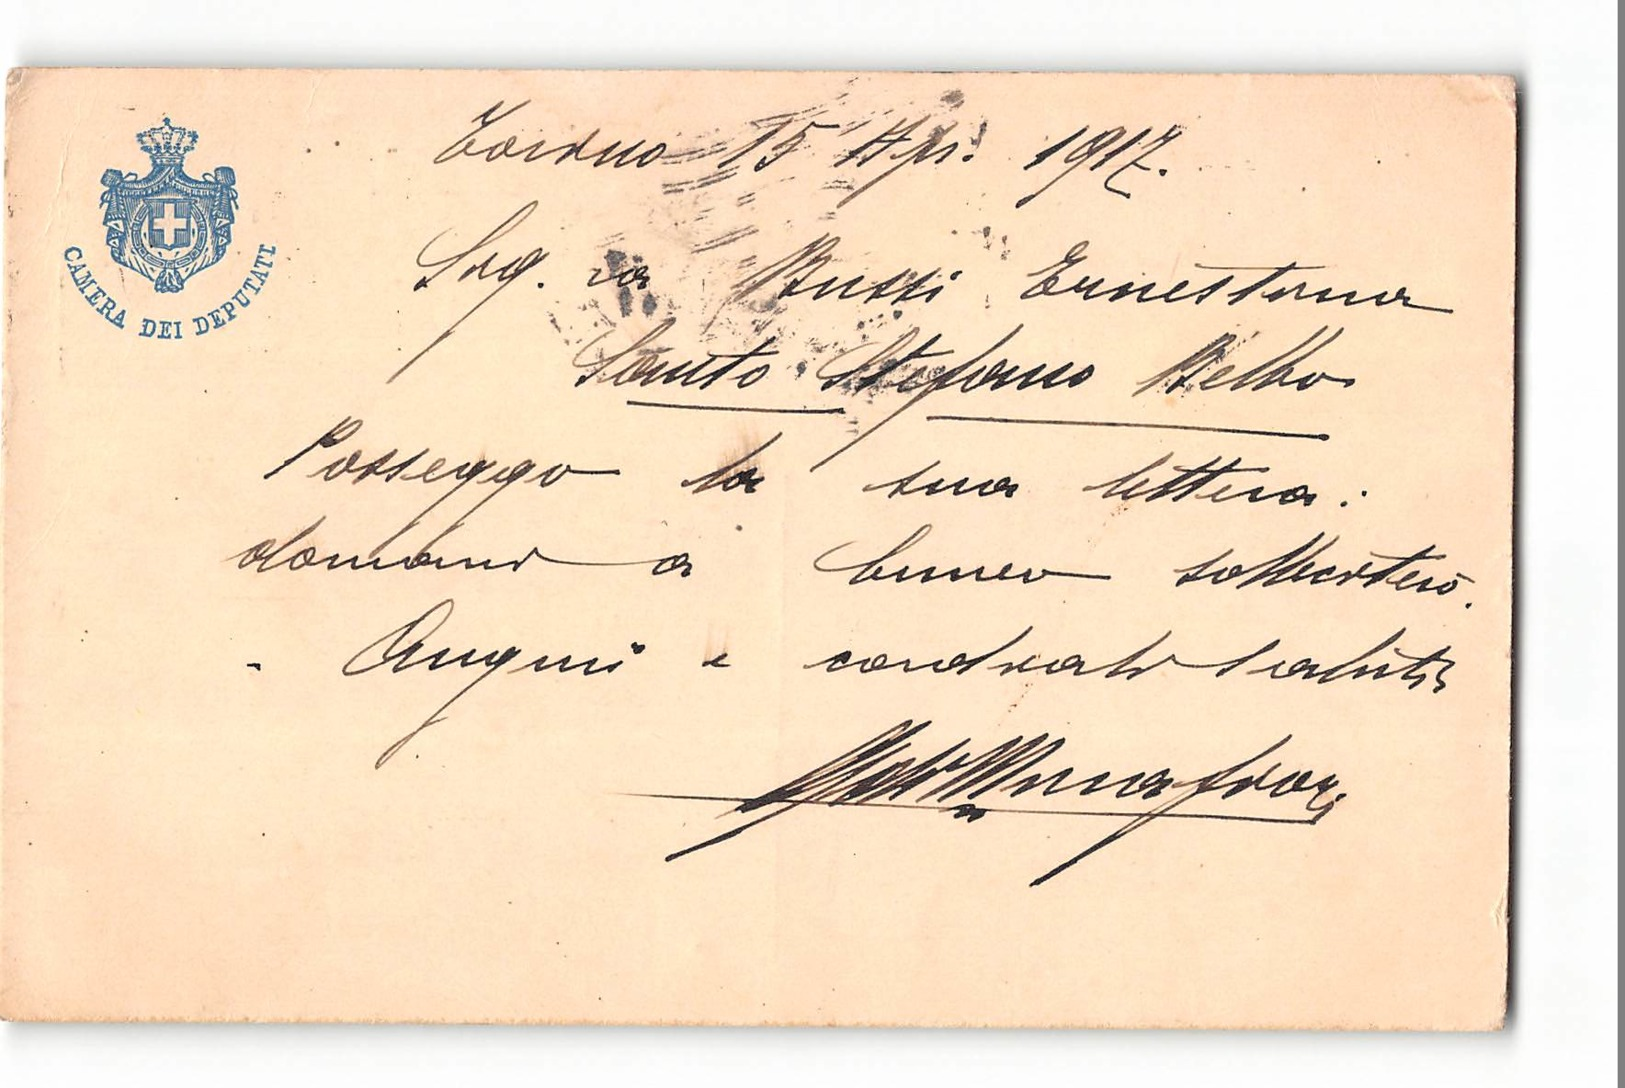 CAMERA DEI DEPUTATI
Torino 15 Apr. 1917.
Sig. ra Bussi Ernestina
Santo Stefano Belbo
Posseggo la sua lettera:
domani a Cuneo solleciterò.
- Auguri e cordiali saluti